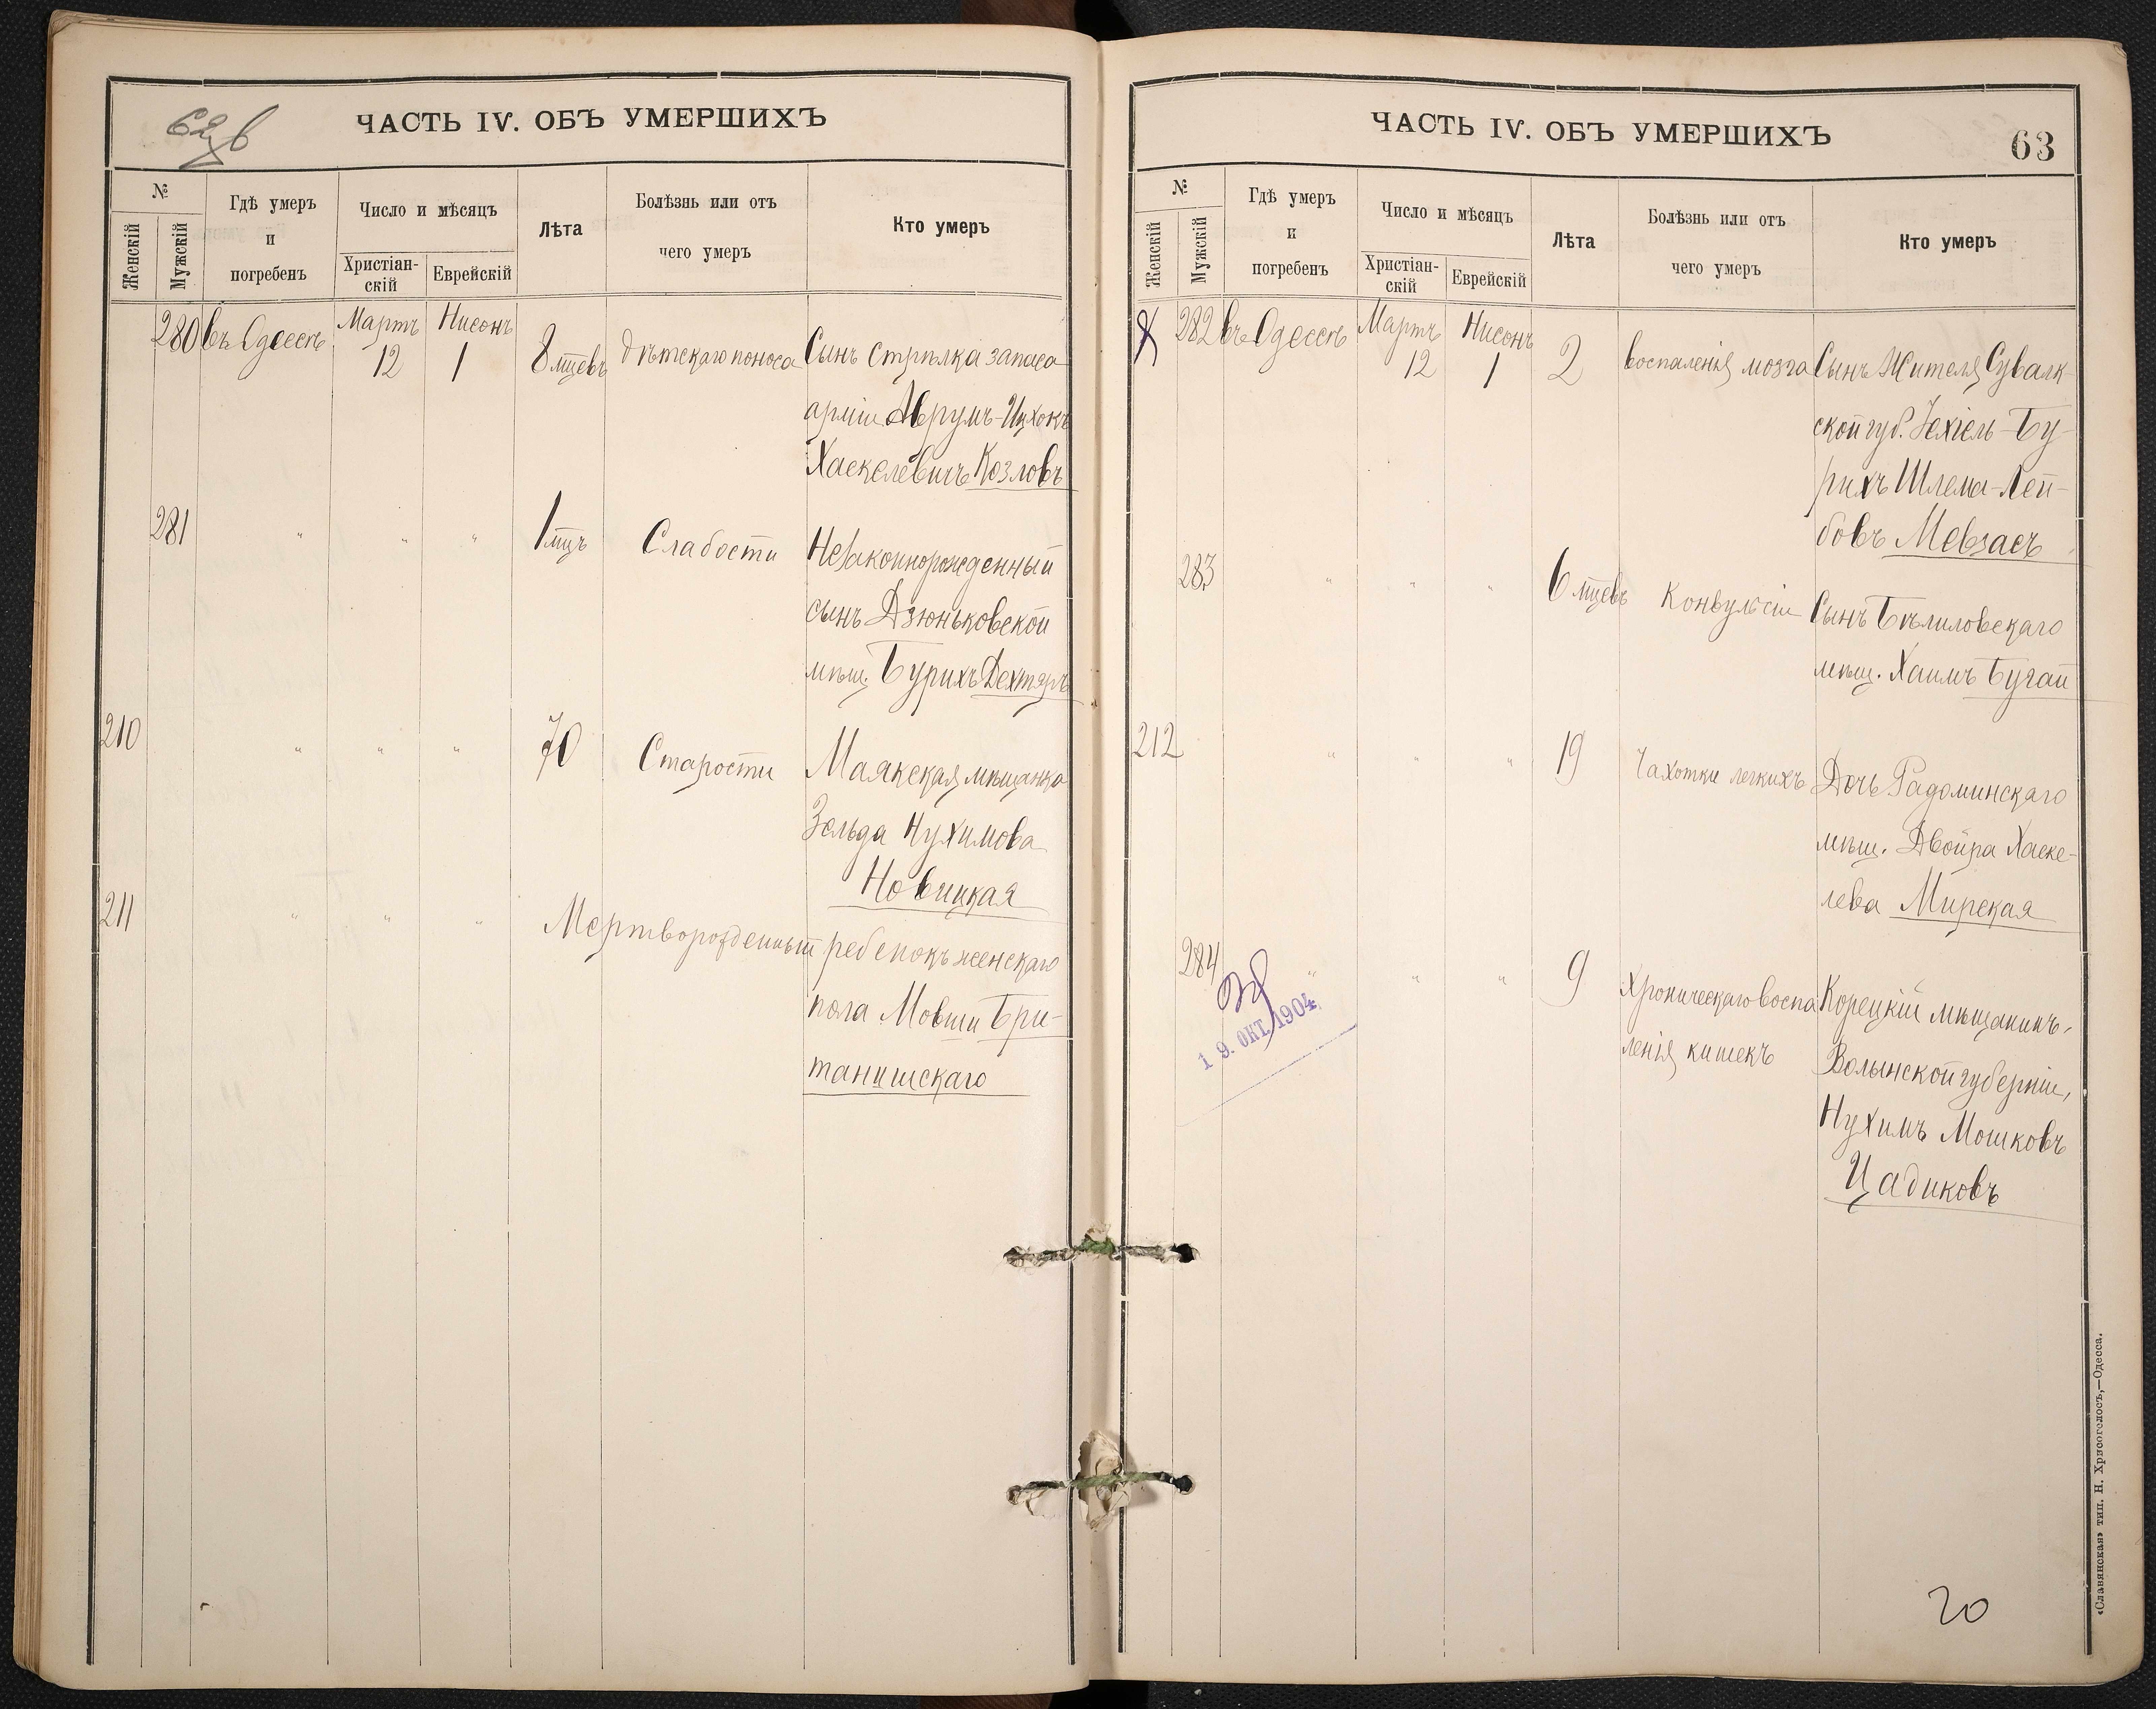 62 в
ЧАСТЬ IV. ОБЪ УМЕРШИХЪ
№
Женскій
Мужскій
Гдѣ умеръ
и
погребенъ
Число и мѣсяцъ
Христіан-
скій
Еврейскій
Лѣта
Болѣзнь или отъ
чего умеръ
Кто умеръ
280 въ Одессѣ Мартъ 12 Нисонъ 1 8 мцевъ дѣтскаго поноса Сынъ стрѣлка запаса
арміи Аврумъ-Ицхокъ
Хаскелевичъ Козловъ
281 " " " 1 мцъ Слабости Незаконнорожденный
сынъ Дзюньковской
мѣщ. Бурихъ Дехтяръ
210 " " " 70 Старости Маякская мѣщанка
Зельда Нухимова
Новицкая
211 " " " Мертворожденный ребенокъ женскаго
пола Мовши Бри-
танишскаго
ЧАСТЬ IV. ОБЪ УМЕРШИХЪ
63
№
Женскій
Мужскій
Гдѣ умеръ
и
погребенъ
Число и мѣсяцъ
Христіан-
скій
Еврейскій
Лѣта
Болѣзнь или отъ
чего умеръ
Кто умеръ
X 282 въ Одессѣ Мартъ 12 Нисонъ 1 2 воспаленія мозга Сынъ Жителя Сувалк-
ской губ. Іехіель-Бу-
рихъ Шлема-Лей-
бовъ Мевзасъ
283 " " " 6 мцевъ Конвульсіи Сынъ Бѣлиловскаго
мѣщ. Хаимъ Бугай
212 " " " 19 Чахотки легкихъ Дочь Радоминскаго
мѣщ. Двойра Хаске-
лева Мирская
284 " " " 9 Хроническаго воспа Корецкій мѣщанинъ,
ленія кишекъ Волынской губерніи,
Нухимъ Мошковъ
Цадиковъ
19. ОКТ. 1904
20
«Славянская» тип. Н. Хрисогелосъ,—Одесса.